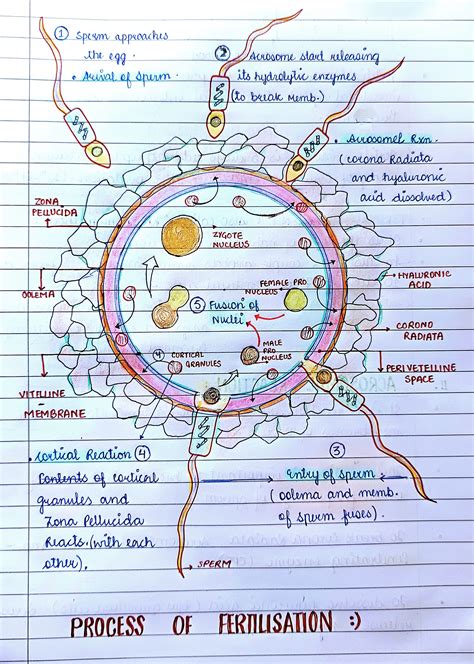 ① Sperm approaches
the egg.
• Arrival of Sperm.
② Acrosome start releasing
its hydrolytic enzymes
(to break memb.)
• Acrosomel Rxn.
(corona Radiata
and hyaluronic
acid dissolved)
ZONA
PELLUCIDA
ZYGOTE
NUCLEUS
OOLEMA
FEMALE PRO
NUCLEUS
HYALURONIC
ACID
⑤ Fusion of
Nuclei
CORONO
RADIATA
MALE
PRO
NUCLEUS
④ CORTICAL
GRANULES
PERIVETELLINE
SPACE
VITELLINE
MEMBRANE
• Cortical Reaction ④
Contents of cortical
granules and
Zona Pellucida
Reacts.(with each
other).
③
Entry of sperm.
(oolema and memb.
of sperm fuses).
SPERM
PROCESS OF FERTILISATION :)